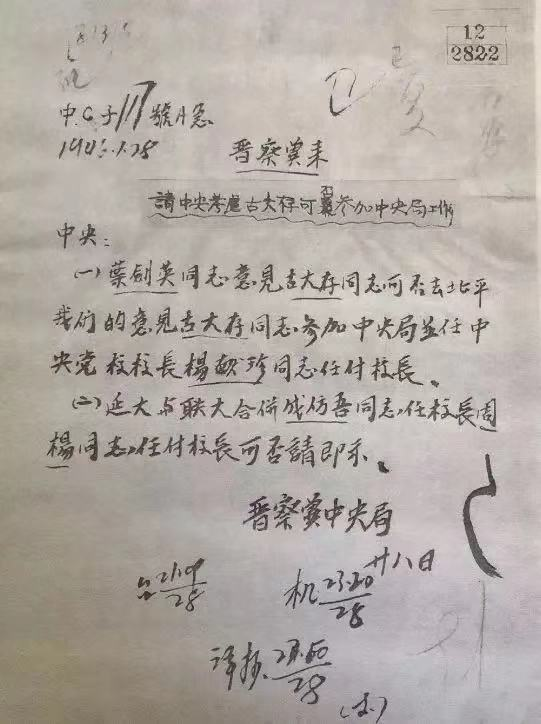 12
2822
中.C.子117號A急
1946.1.28
晋察冀来
請中央考慮古大存可否参加中央局工作
中央：
(一)葉剑英同志意見古大存同志可否去北平
我们的意見古大存同志参加中央局並任中
央党校校長楊献珍同志任付校長。
(二)延大与联大合併成仿吾同志任校長周
楊同志任付校長可否請即示。
晋察冀中央局
廿八日
28
机2320
28
譯
28